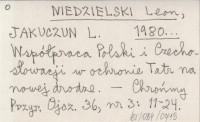 o
NIEDZIELSKI Leon,
JAKUCZUN L. 1980...
Współpraca Polski i Czecho-
słowacji w ochronie Tatr na
nowej drodze. — Chrońmy
Przyr. Ojcz. 36, nr 3: 11-24.